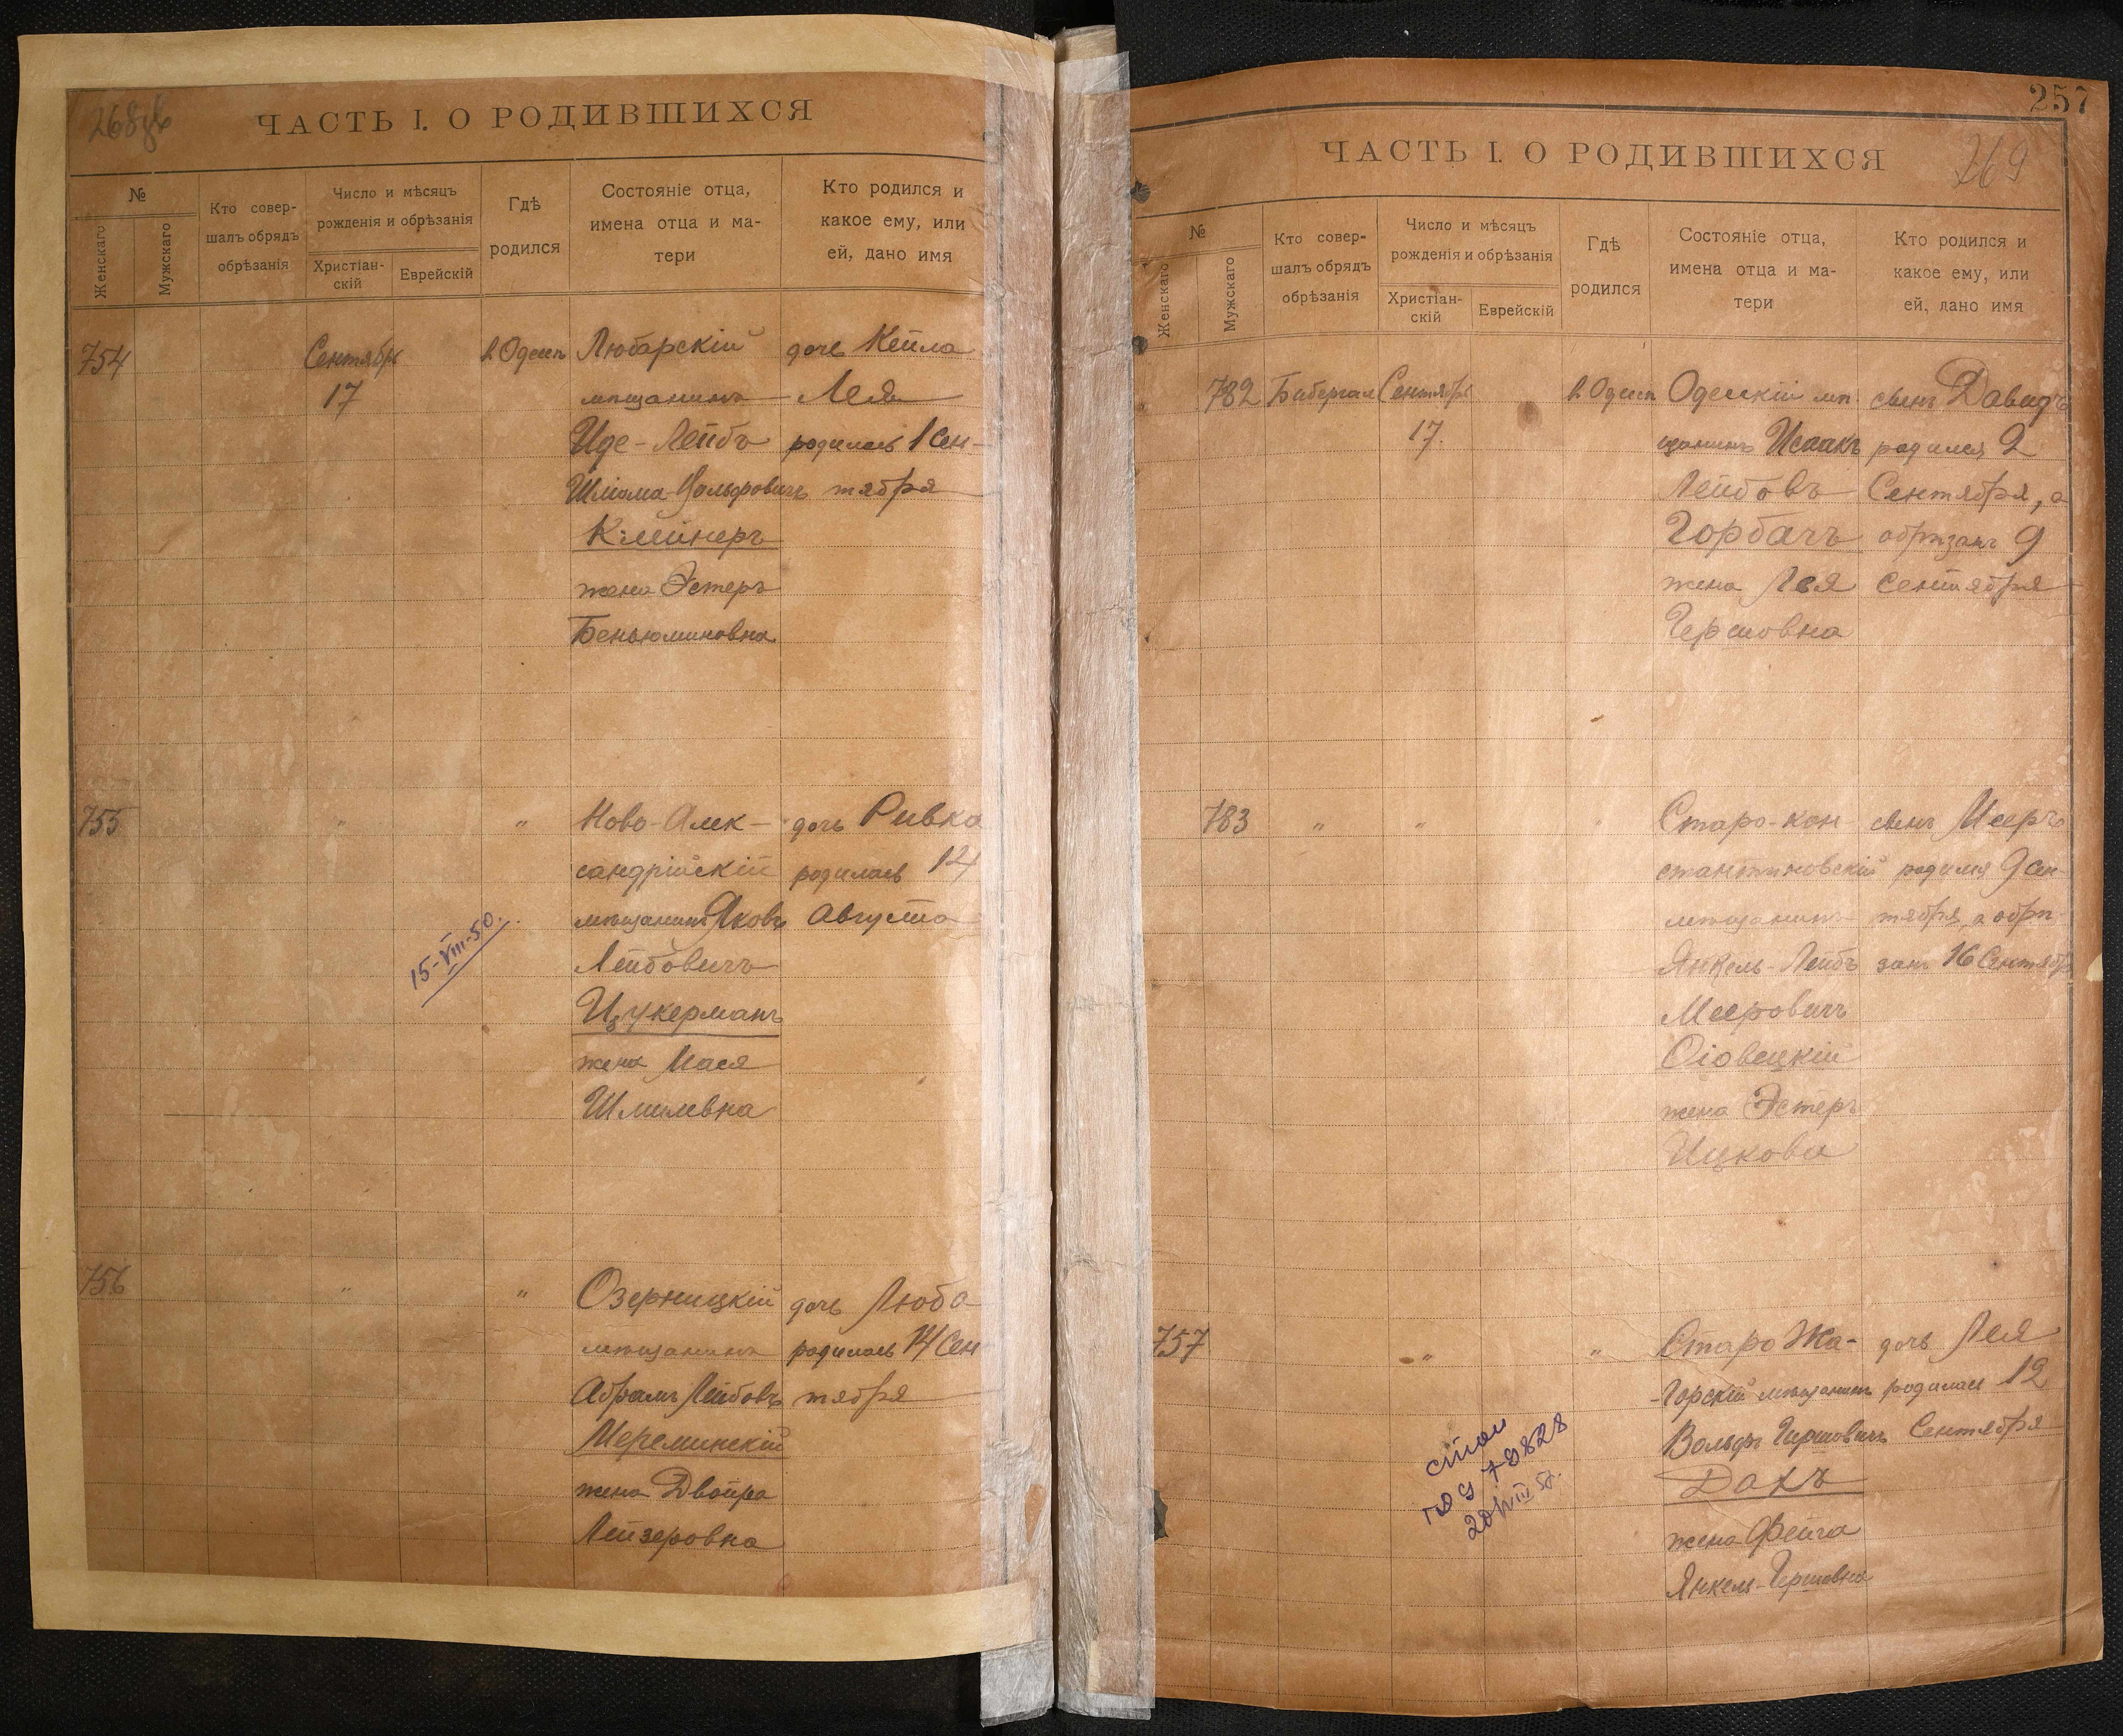 ЧАСТЬ I. О РОДИВШИХСЯ
№
Женскаго
Мужскаго
Кто совер-
шалъ обрядъ
обрѣзанія
Число и мѣсяцъ
рожденія и обрѣзанія
Христіан-
скій
Еврейскій
Гдѣ
родился
Состояніе отца,
имена отца и ма-
тери
Кто родился и
какое ему, или
ей, дано имя
754
Сентябрь
17
в Одессѣ
Любарскій
мѣщанинъ
Иде-Лейбъ
Шліома-Вольфовичъ
Клейнеръ
жена Эстеръ
Беньюминовна
дочь Кейла
Лея
родилась 1 Сен-
тября
755
"
"
15-VIII-50.
Ново-Алек-
сандрійскій
мѣщанинъ Яковъ
Лейбовичъ
Цукерманъ
жена Мася
Шмилевна
дочь Ривка
родилась 14
Августа
756
"
"
Озерницкій
мѣщанинъ
Абрамъ Лейбовъ
Мереминскій
жена Двойра
Лейзеровна
дочь Люба
родилась 14 Сен
тября
257
ЧАСТЬ I. О РОДИВШИХСЯ
269
№
Женскаго
Мужскаго
Кто совер-
шалъ обрядъ
обрѣзанія
Число и мѣсяцъ
рожденія и обрѣзанія
Христіан-
скій
Еврейскій
Гдѣ
родился
Состояніе отца,
имена отца и ма-
тери
Кто родился и
какое ему, или
ей, дано имя
782
Бибергал
Сентябрь
17.
в Одессѣ
Одесскій мѣ-
щанинъ Исаакъ
Лейбовъ
Горбачъ
жена Лея
Гершовна
сынъ Давидъ
родился 2
Сентября, а
обрѣзанъ 9
Сентября
783
"
"
Старо-кон
стантиновскій
мѣщанинъ
Янкель-Лейбъ
Мееровичъ
жена Эстеръ
Ицкова
сынъ Мееръ
родился 9 Сен-
тября, а обрѣ-
занъ 16 Сентябр
757
"
"
Старо Жа-
-горскій мѣщанинъ
Вольфъ Гершовичъ
Дахъ
жена Фейга
Янкель-Гершовна
дочь Лея
родилась 12
Сентября